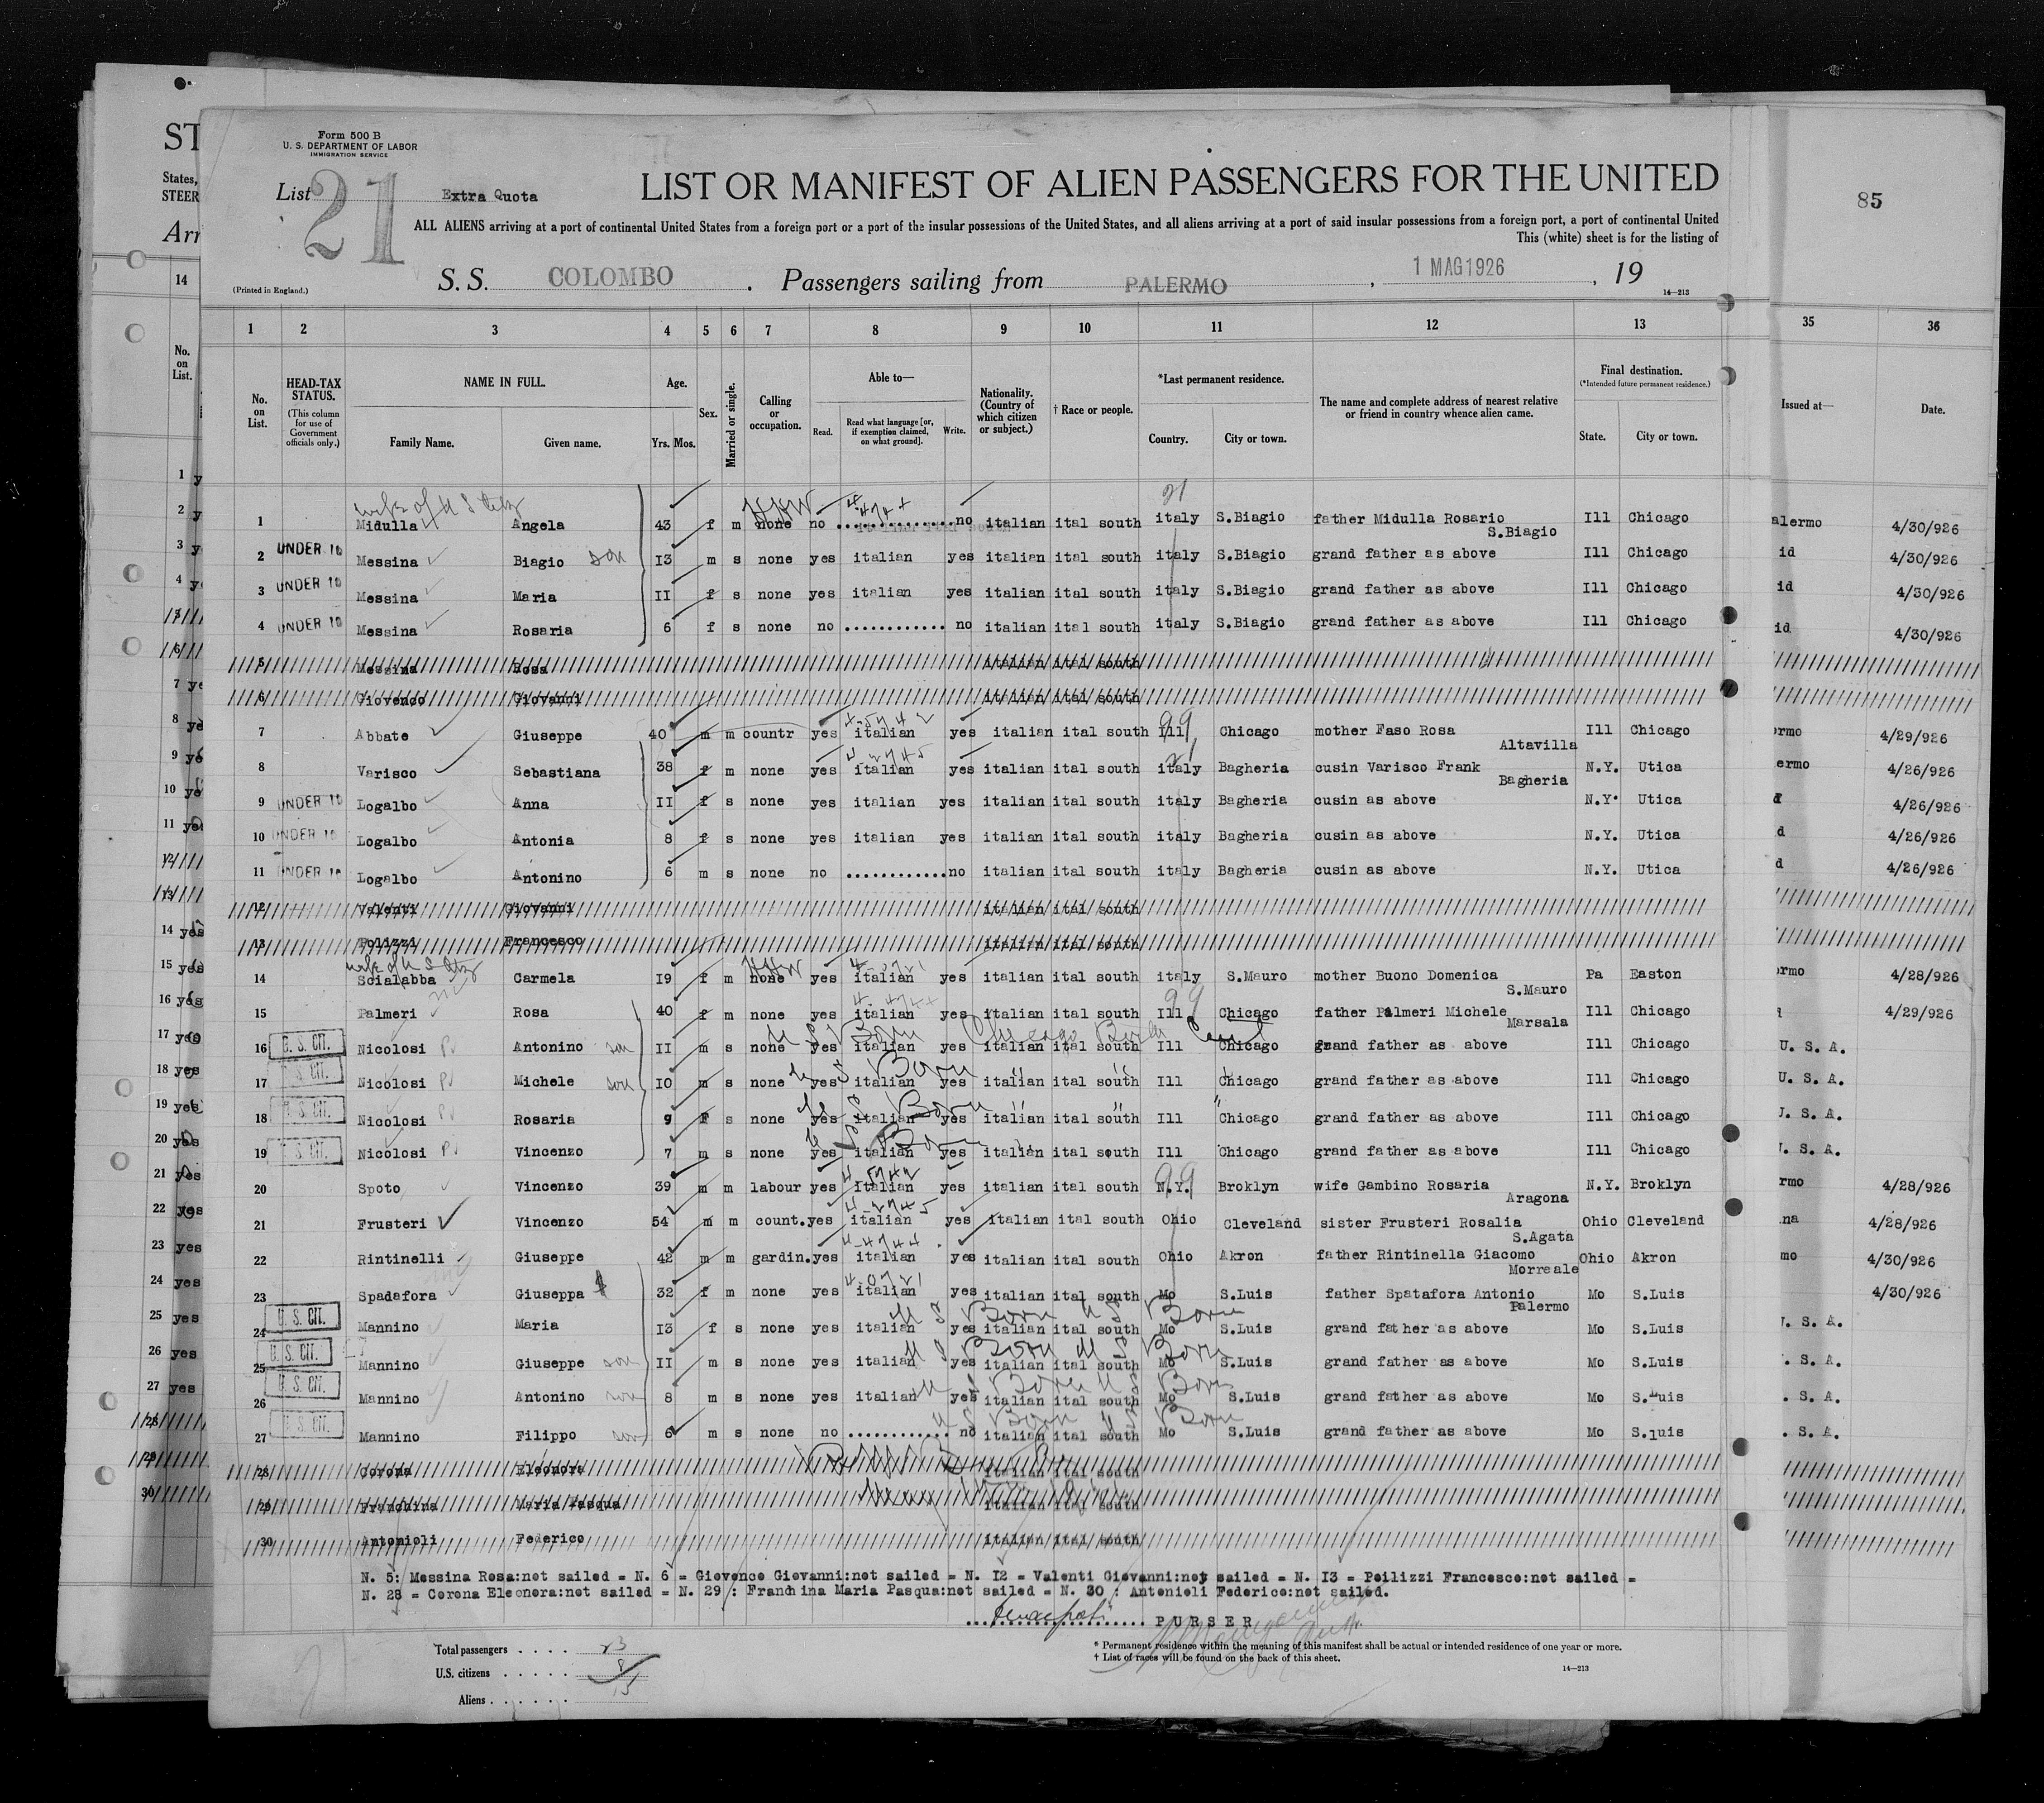 Form 500 B
U. S. DEPARTMENT OF LABOR
IMMIGRATION SERVICE
List 21 Extra Quota
LIST OR MANIFEST OF ALIEN PASSENGERS FOR THE UNITED
ALL ALIENS arriving at a port of continental United States from a foreign port or a port of the insular possessions of the United States, and all aliens arriving at a port of said insular possessions from a foreign port, a port of continental United
This (white) sheet is for the listing of
(Printed in England.)
S. S. COLOMBO. Passengers sailing from PALERMO, 1 MAG 1926, 19
14—213
85
ST
States,
STEER
Arr
14
No. on List.
1 2 3 4 5 6 7 8 9 10 11 12 13 35 36
No. on List.
HEAD-TAX STATUS.
(This column for use of Government officials only.)
NAME IN FULL.
Family Name. Given name.
Age.
Yrs. Mos.
Sex.
Married or single.
Calling or occupation.
Able to—
Read. Read what language [or, if exemption claimed, on what ground]. Write.
Nationality. (Country of which citizen or subject.)
† Race or people.
*Last permanent residence.
Country. City or town.
The name and complete address of nearest relative or friend in country whence alien came.
Final destination.
(*Intended future permanent residence.)
State. City or town.
Issued at—
Date.
wife of U S Ctz 21
1 Midulla Angela 43 f m none HHW no ............... no italian ital south italy S.Biagio father Midulla Rosario Ill Chicago alermo 4/30/926
S.Biagio
2 UNDER 16 Messina Biagio son 13 m s none yes italian yes italian ital south italy S.Biagio grand father as above Ill Chicago id 4/30/926
3 UNDER 16 Messina Maria II f s none yes italian yes italian ital south italy S.Biagio grand father as above Ill Chicago id 4/30/926
4 UNDER 16 Messina Rosaria 6 f s none no ............ no italian ital south italy S.Biagio grand father as above Ill Chicago id 4/30/926
5 Messina Rosa italian ital south
6 Giovenco Giovanni italian ital south
7 Abbate Giuseppe 40 m m countr yes italian yes italian ital south Ill 99 Chicago mother Faso Rosa Ill Chicago ermo 4/29/926
Altavilla
8 Varisco Sebastiana 38 f m none yes italian yes italian ital south italy 21 Bagheria cusin Varisco Frank N.Y. Utica ermo 4/26/926
Bagheria
9 UNDER 16 Logalbo Anna II f s none yes italian yes italian ital south italy Bagheria cusin as above N.Y. Utica d 4/26/926
10 UNDER 16 Logalbo Antonia 8 f s none yes italian yes italian ital south italy Bagheria cusin as above N.Y. Utica d 4/26/926
11 UNDER 16 Logalbo Antonino 6 m s none no ............ no italian ital south italy Bagheria cusin as above N.Y. Utica d 4/26/926
12 Valenti Giovanni italian ital south
13 Polizzi Francesco italian ital south
wife of U S Ctz
14 Scialabba Carmela 19 f m none HHW yes italian yes italian ital south italy S.Mauro mother Buono Domenica Pa Easton ermo 4/28/926
S.Mauro
15 Palmeri Rosa 40 f m none yes italian yes italian ital south Ill 99 Chicago father Palmeri Michele Ill Chicago 4/29/926
Marsala
U S Born Chicago Birth Cert
16 U. S. CIT. Nicolosi Antonino son II m s none yes italian yes italian ital south Ill Chicago grand father as above Ill Chicago U. S. A.
17 U. S. CIT. Nicolosi Michele son 10 m s none yes italian yes italian ital south Ill Chicago grand father as above Ill Chicago U. S. A.
U S Born
18 U. S. CIT. Nicolosi Rosaria 9 f s none yes italian yes italian ital south Ill Chicago grand father as above Ill Chicago U. S. A.
U S Born
19 U. S. CIT. Nicolosi Vincenzo 7 m s none yes italian yes italian ital south Ill Chicago grand father as above Ill Chicago U. S. A.
U S Born
20 Spoto Vincenzo 39 m m labour yes Italian yes italian ital south N.Y. 99 Broklyn wife Gambino Rosaria N.Y. Broklyn rmo 4/28/926
Aragona
21 Frusteri Vincenzo 54 m m count. yes italian yes italian ital south Ohio Cleveland sister Frusteri Rosalia Ohio Cleveland na 4/28/926
S.Agata
22 Rintinelli Giuseppe 42 m m gardin. yes italian yes italian ital south Ohio Akron father Rintinella Giacomo Ohio Akron mo 4/30/926
Morreale
23 Spadafora Giuseppa 32 f m none yes italian yes italian ital south Mo S.Luis father Spatafora Antonio Mo S.Luis 4/30/926
Palermo
U S Born U S Born
24 U. S. CIT. Mannino Maria 13 f s none yes italian yes italian ital south Mo S.Luis grand father as above Mo S.Luis U. S. A.
U S Born U S Born
25 U. S. CIT. Mannino Giuseppe son II m s none yes italian yes italian ital south Mo S.Luis grand father as above Mo S.Luis . S. A.
U S Born U S Born
26 U. S. CIT. Mannino Antonino son 8 m s none yes italian yes italian ital south Mo S.Luis grand father as above Mo S.Luis . S. A.
U S Born U S Born
27 U. S. CIT. Mannino Filippo son 6 m s none no ............ no italian ital south Mo S.Luis grand father as above Mo S.luis . S. A.
28 Corona Eleonora italian ital south
29 Franchina Maria Pasqua italian ital south
30 Antonioli Federico italian ital south
N. 5: Messina Rosa:not sailed = N. 6 = Giovenco Giovanni:not sailed = N. I2 = Valenti Giovanni:not sailed = N. I3 = Poilizzi Francesco:not sailed =
N. 28 = Corona Eleonora:not sailed = N. 29 : Franchina Maria Pasqua:not sailed = N. 30 : Antonioli Federico:not sailed.
PURSER
Total passengers . . . . 23
U.S. citizens . . . . . 8
Aliens . . . . . . 15
* Permanent residence within the meaning of this manifest shall be actual or intended residence of one year or more.
† List of races will be found on the back of this sheet.
14—213